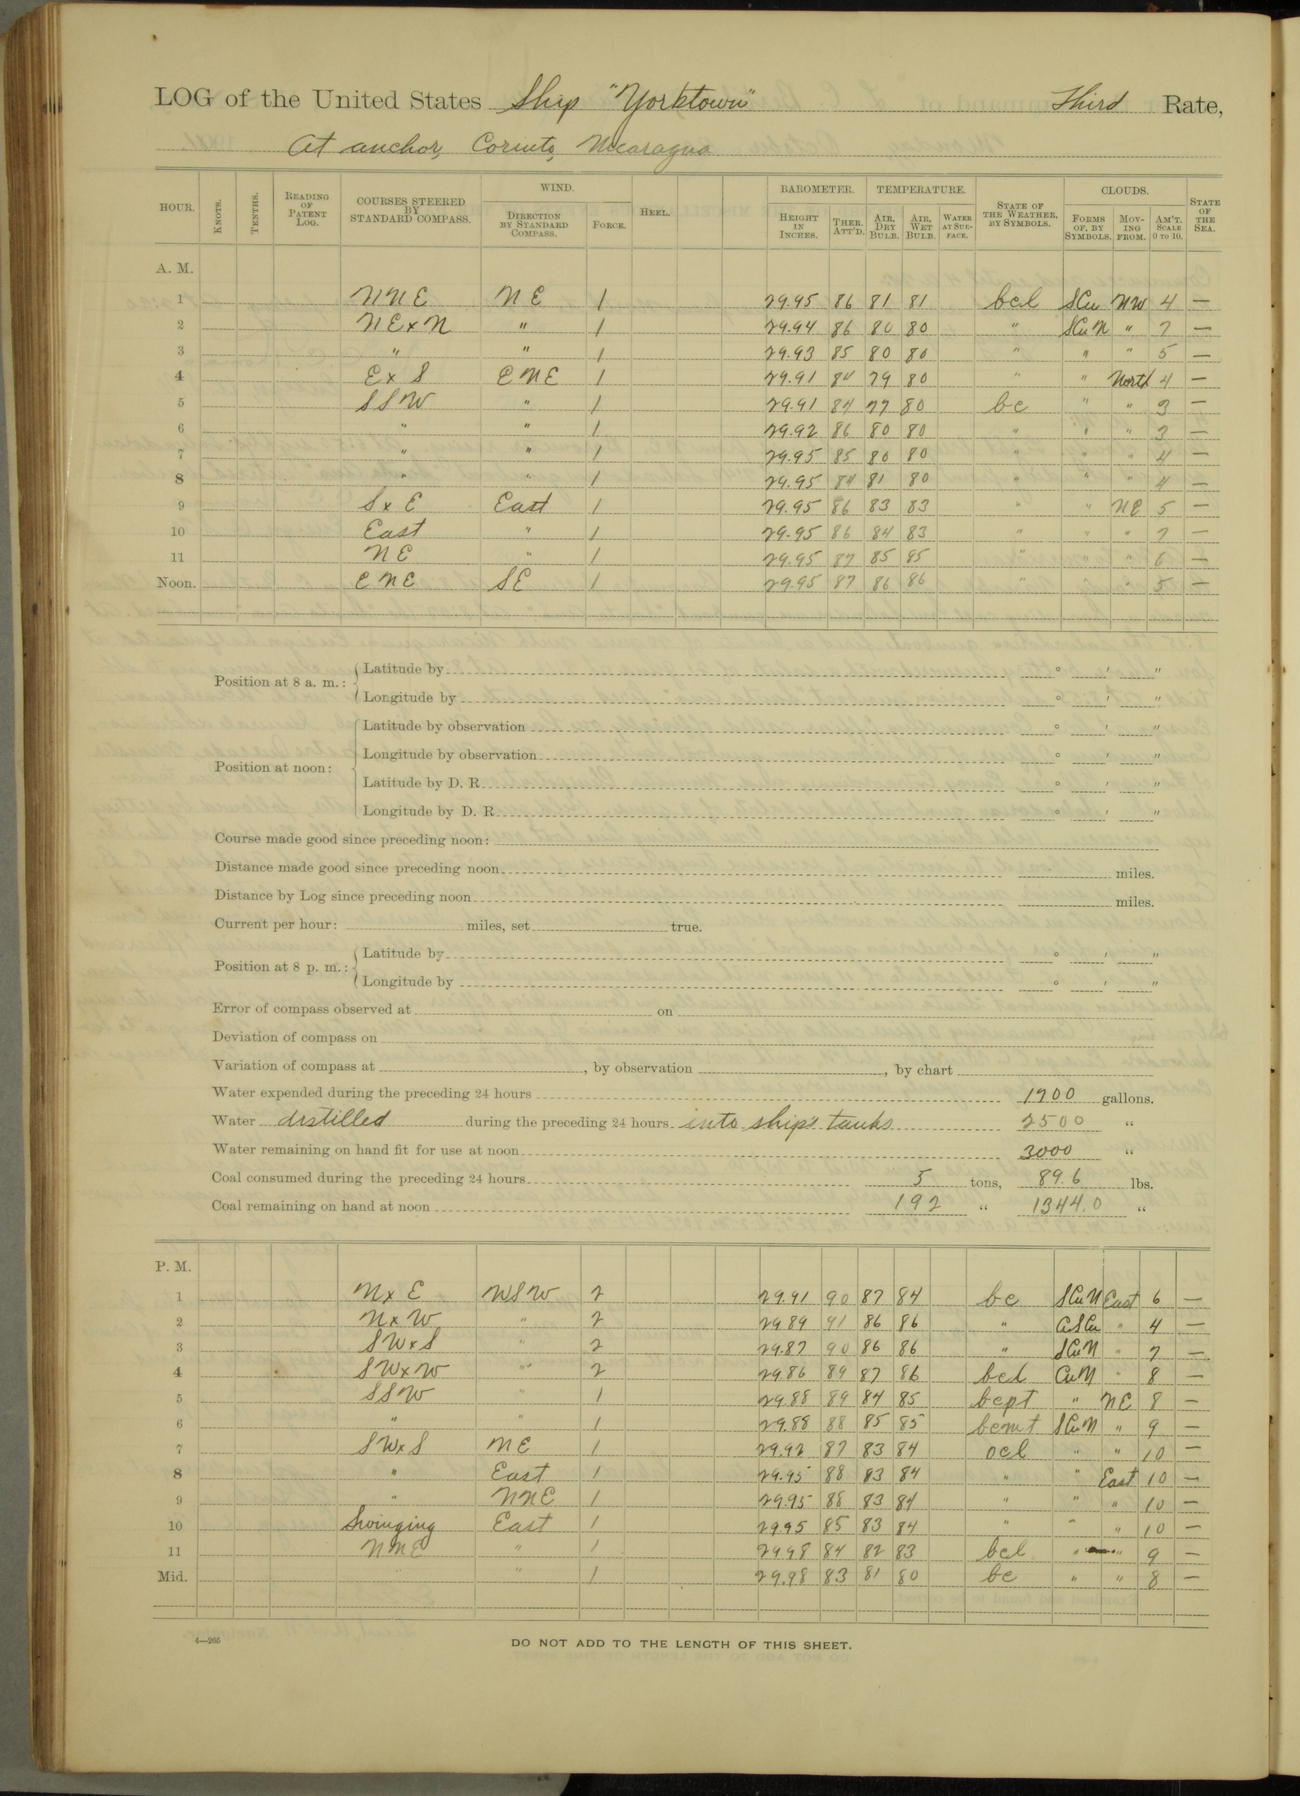 LOG of the United States Ship "Yorktown" Third Rate,
At anchor, Corinto, Nicaragua
HOUR. KNOTS. TENTHS. READING OF PATENT LOG. COURSES STEERED BY STANDARD COMPASS. WIND. DIRECTION BY STANDARD COMPASS. FORCE. HEEL. BAROMETER. HEIGHT IN INCHES. THER. ATT'D. TEMPERATURE. AIR, DRY BULB. AIR, WET BULB. WATER AT SURFACE. STATE OF THE WEATHER, BY SYMBOLS. CLOUDS. FORMS OF, BY SYMBOLS. MOVING FROM. AM'T. SCALE 0 TO 10. STATE OF THE SEA.
A. M.
1 NNE NE 1 29.95 86 81 81 bcl SCu NW 4 —
2 NExN " 1 29.94 86 80 80 " SCuN " 7 —
3 " " 1 29.93 85 80 80 " " " 5 —
4 ExS ENE 1 29.91 84 79 80 " " North 4 —
5 SSW " 1 29.91 84 77 80 bc " " 3 —
6 " " 1 29.92 86 80 80 " " " 3 —
7 " " 1 29.95 85 80 80 " " " 4 —
8 " " 1 29.95 84 81 80 " " " 4 —
9 SxE East 1 29.95 86 83 83 " " NE 5 —
10 East " 1 29.95 86 84 83 " " " 7 —
11 NE " 1 29.95 87 85 85 " " " 6 —
Noon. ENE SE 1 29.95 87 86 86 " " " 5 —
Position at 8 a. m.: Latitude by ° ' "
Longitude by ° ' "
Position at noon: Latitude by observation ° ' "
Longitude by observation ° ' "
Latitude by D. R. ° ' "
Longitude by D. R. ° ' "
Course made good since preceding noon:
Distance made good since preceding noon miles.
Distance by Log since preceding noon miles.
Current per hour: miles, set true.
Position at 8 p. m.: Latitude by ° ' "
Longitude by ° ' "
Error of compass observed at on
Deviation of compass on
Variation of compass at , by observation , by chart
Water expended during the preceding 24 hours 1700 gallons.
Water distilled during the preceding 24 hours into ship's tanks 2500 "
Water remaining on hand fit for use at noon 3000 "
Coal consumed during the preceding 24 hours 5 tons, 89.6 lbs.
Coal remaining on hand at noon 192 " 1344.0 "
P. M.
1 NxE WSW 2 29.91 90 87 84 bc SCuN East 6 —
2 NxW " 2 29.89 91 86 86 " CSCu " 4 —
3 SWxS " 2 29.87 90 86 86 " SCuN " 7 —
4 SWxW " 2 29.86 89 87 86 bcl CuN " 8 —
5 SSW " 1 29.88 89 84 85 bcpt " NE 8 —
6 " " 1 29.88 88 85 85 SCuN " 9 —
7 SWxS NE 1 29.92 87 83 84 ocl " " 10 —
8 " East 1 29.95 88 83 84 " " East 10 —
9 " NNE 1 29.95 88 83 84 " " " 10 —
10 Swinging East 1 29.95 85 83 84 " " " 10 —
11 NNE " 1 29.98 84 82 83 bcl " " 9 —
Mid. " 1 29.98 83 81 80 bc " " 8 —
4—265 DO NOT ADD TO THE LENGTH OF THIS SHEET.